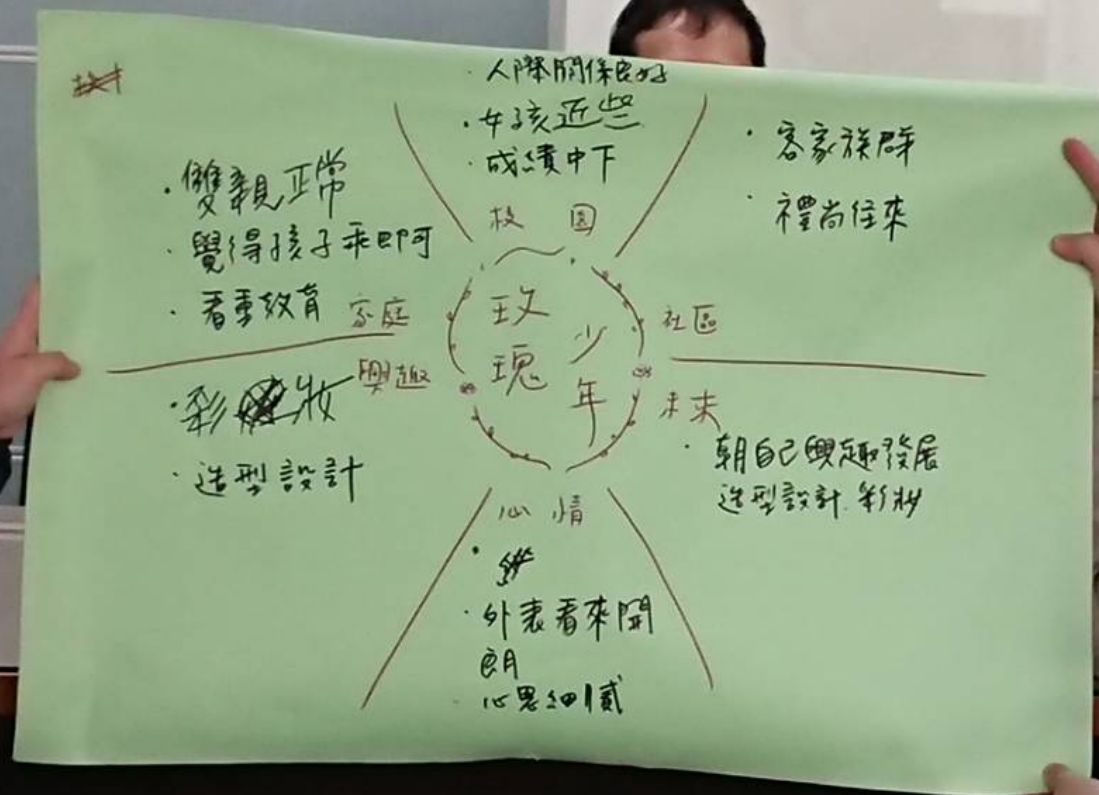 · 人際關係良好
· 女孩近些
· 成績中下
校園
· 客家族群
· 禮尚往來
社區
· 雙親正常
· 覺得孩子乖即可
· 看重教育
家庭
玫瑰
少年
興趣
· 彩妝
· 造型設計
未來
· 朝自己興趣發展
造型設計.彩妝
心情
· 外表看來開
朗
· 心思細膩